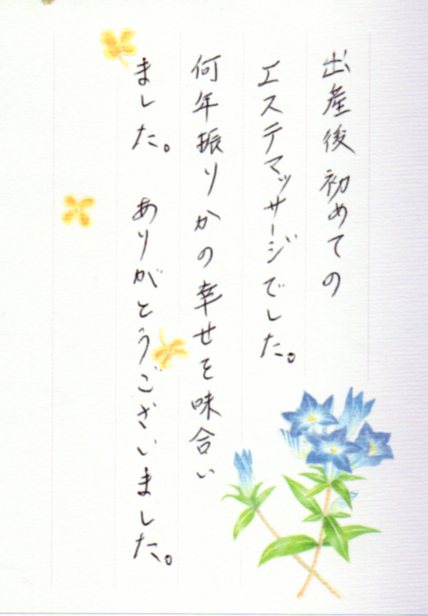 出産後初めての
エステマッサージでした。
何年振りかの幸せを味合い
ました。 ありがとうございました。